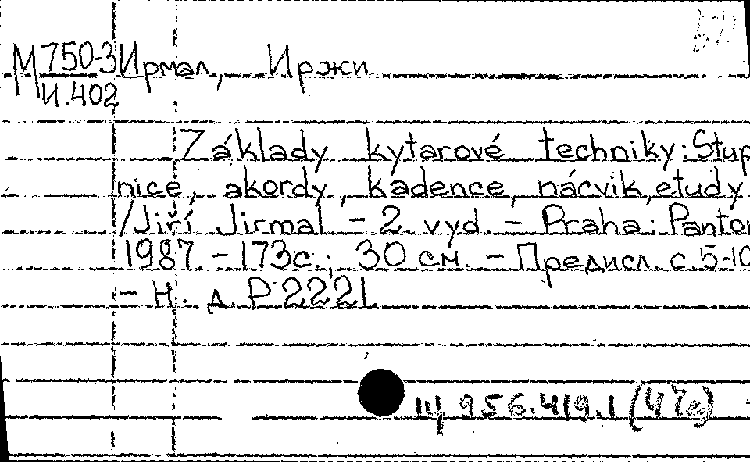 М750-3 Ирмал, Иржи
И.402
Základy kytarové techniky: Stup
nice, akordy, kadence, nácvik, etudy
/Jiří Jirmal - 2. vyd. - Praha: Panton
1987. - 173с.; 30 см. - Предисл. с.5-10
- Н. д. P 2221
Щ 956.419.1 (4Че)